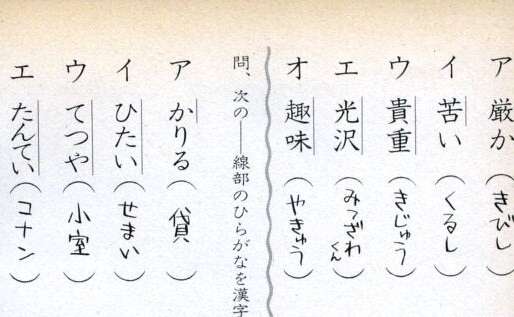 ア 厳か（きびし）
イ 苦い（くるし）
ウ 貴重（きじゅう）
エ 光沢（みつざわくん）
オ 趣味（やきゅう）
問、次の━━線部のひらがなを漢字
ア かりる（貸）
イ ひたい（せまい）
ウ てつや（小室）
エ たんてい（コナン）